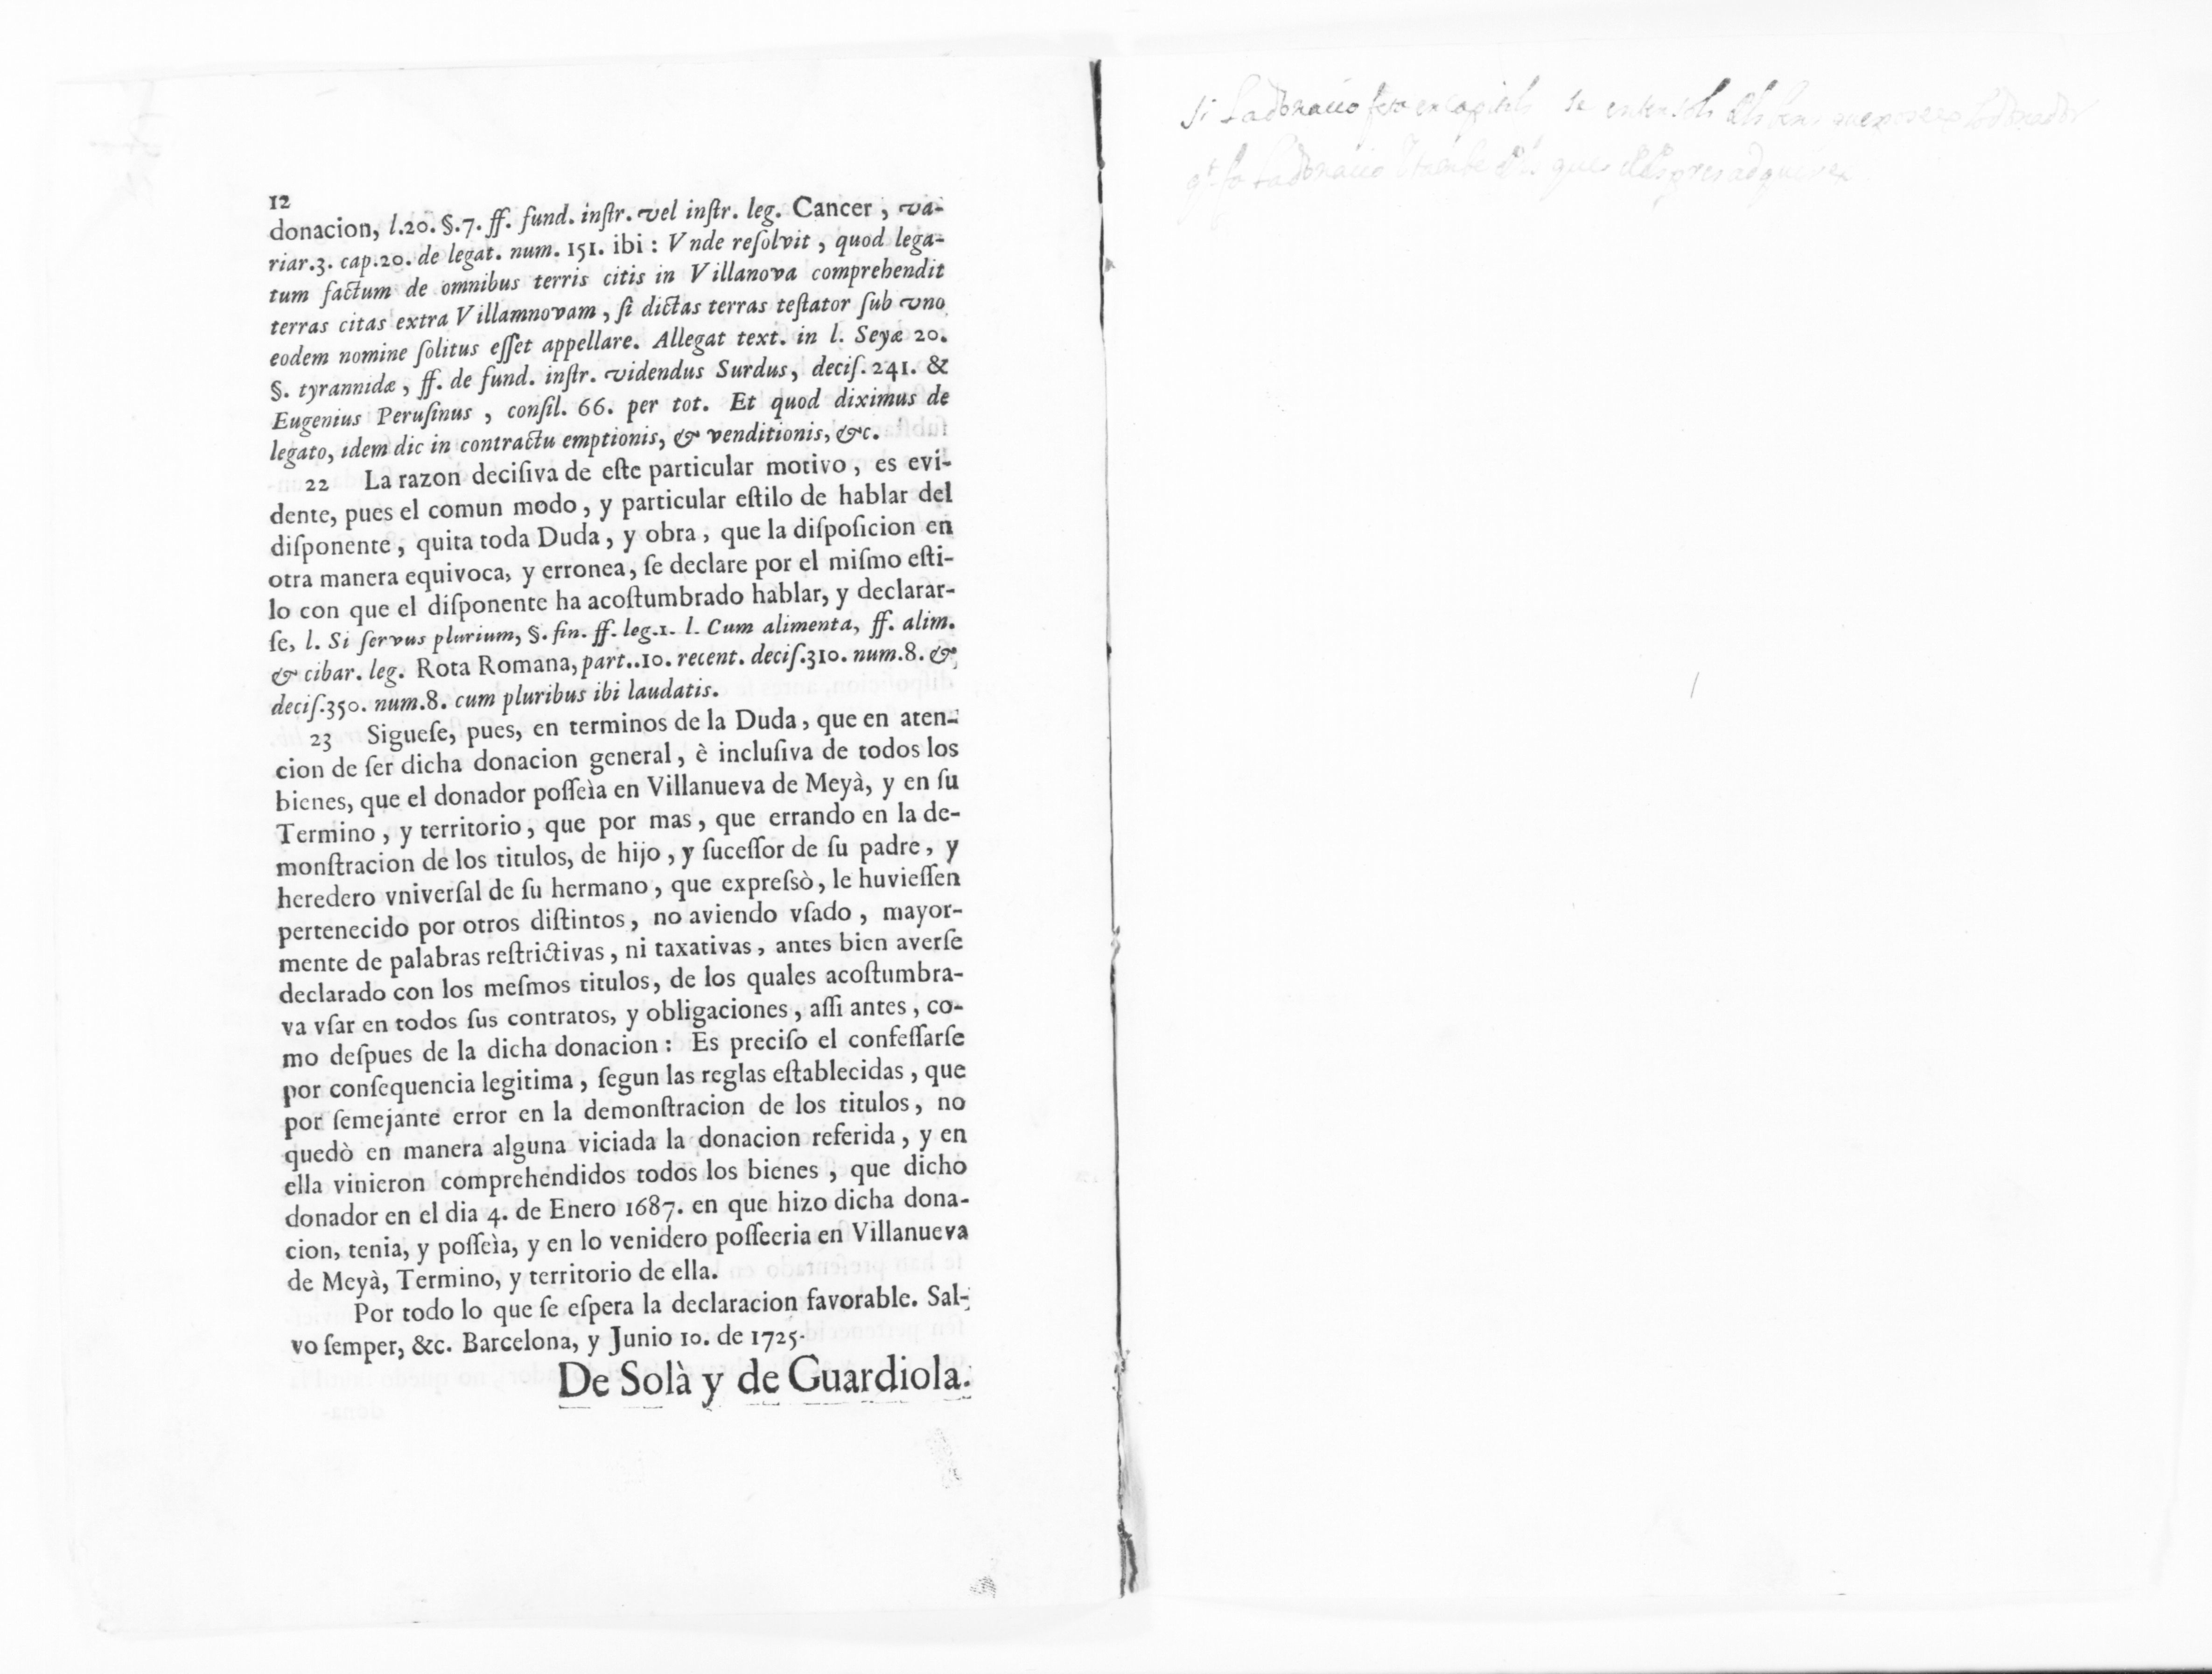 12
donacion, l.20. §.7. ff. fund. inſtr. vel inſtr. leg. Cancer, va-
riar.3. cap.20. de legat. num. 151. ibi: Vnde reſolvit, quod lega-
tum factum de omnibus terris citis in Villanova comprehendit
terras citas extra Villamnovam, ſi dictas terras teſtator ſub vno
eodem nomine ſolitus eſſet appellare. Allegat text. in l. Seyæ 20.
§. tyrannidæ, ff. de fund. inſtr. videndus Surdus, deciſ. 241. &
Eugenius Peruſinus, conſil. 66. per tot. Et quod diximus de
legato, idem dic in contractu emptionis, & venditionis, &c.
22 La razon deciſiva de eſte particular motivo, es evi-
dente, pues el comun modo, y particular eſtilo de hablar del
diſponente, quita toda Duda, y obra, que la diſpoſicion en
otra manera equivoca, y erronea, ſe declare por el miſmo eſti-
lo con que el diſponente ha acoſtumbrado hablar, y declarar-
ſe, l. Si ſervus plurium, §. fin. ff. leg.1. l. Cum alimenta, ff. alim.
& cibar. leg. Rota Romana, part..10. recent. deciſ.310. num.8. &
deciſ.350. num.8. cum pluribus ibi laudatis.
23 Sigueſe, pues, en terminos de la Duda, que en aten-
cion de ſer dicha donacion general, è incluſiva de todos los
bienes, que el donador poſſeìa en Villanueva de Meyà, y en ſu
Termino, y territorio, que por mas, que errando en la de-
monſtracion de los titulos, de hijo, y ſuceſſor de ſu padre, y
heredero vniverſal de ſu hermano, que expreſsò, le huvieſſen
pertenecido por otros diſtintos, no aviendo vſado, mayor-
mente de palabras reſtrictivas, ni taxativas, antes bien averſe
declarado con los meſmos titulos, de los quales acoſtumbra-
va vſar en todos ſus contratos, y obligaciones, aſſi antes, co-
mo deſpues de la dicha donacion: Es preciſo el confeſſarſe
por conſequencia legitima, ſegun las reglas eſtablecidas, que
por ſemejante error en la demonſtracion de los titulos, no
quedò en manera alguna viciada la donacion referida, y en
ella vinieron comprehendidos todos los bienes, que dicho
donador en el dia 4. de Enero 1687. en que hizo dicha dona-
cion, tenia, y poſſeìa, y en lo venidero poſſeeria en Villanueva
de Meyà, Termino, y territorio de ella.
Por todo lo que ſe eſpera la declaracion favorable. Sal-
vo ſemper, &c. Barcelona, y Junio 10. de 1725.
De Solà y de Guardiola.
Si La donacio feta en capitols se
La donacio